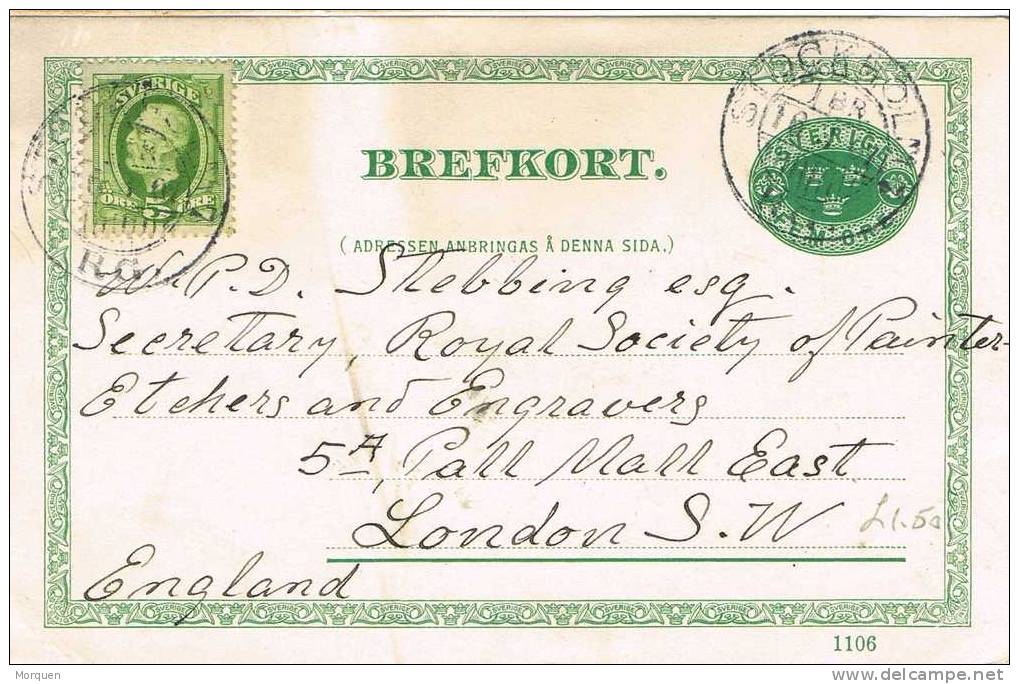 SVERIGE
5
ÖRE ÖRE
STOCKHOLM
SVERIGE
FEM ÖRE
BREFKORT.
(ADRESSEN ANBRINGAS Å DENNA SIDA.)
W. P. D. Stebbing esq.
Secretary, Royal Society of Painter-
Etchers and Engravers
5A, Pall Mall East
London S.W
£1.50
England
1106
Morquen
www.delcampe.net